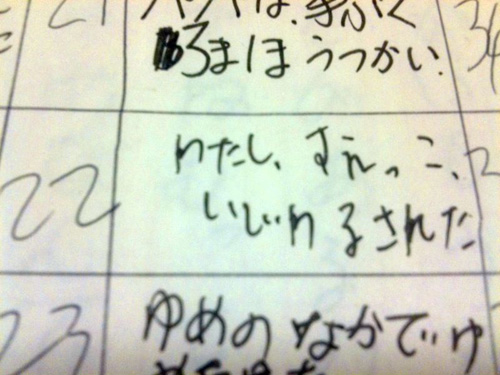 21
パパは、まふく
ろまほうつかい。
22
わたし、すえっこ、
いじわるされた
23
ゆめのなかでゆ